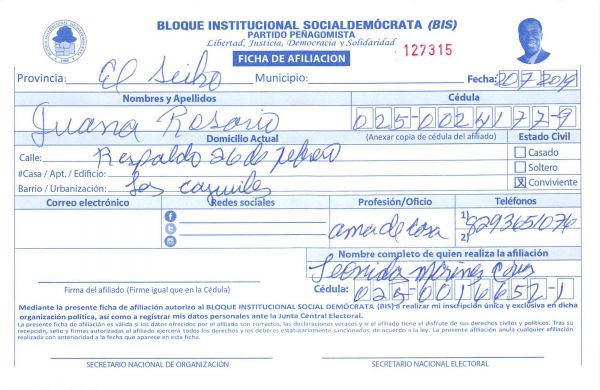 BLOQUE INSTITUCIONAL SOCIALDEMÓCRATA (BIS)
PARTIDO PEÑAGOMISTA
Libertad, Justicia, Democracia y Solidaridad
127315
FICHA DE AFILIACION
Provincia: El Seibo Municipio: Fecha: 20/7/2019
Nombres y Apellidos Cédula
Juana Rosario 025-0024177-9
Domicilio Actual (Anexar copia de cédula del afiliado) Estado Civil
Calle: Respaldo 26 de febrero Casado
#Casa / Apt. / Edificio: Soltero
Barrio / Urbanización: Los cajuiles X Conviviente
Correo electrónico Redes sociales Profesión/Oficio Teléfonos
ama de casa 1) 8293651076
2)
Nombre completo de quien realiza la afiliación
Firma del afiliado (Firme igual que en la Cédula) Cédula: 025-0016652-1
Mediante la presente ficha de afiliación autorizo al BLOQUE INSTITUCIONAL SOCIAL DEMÓCRATA (BIS) a realizar mi inscripción única y exclusiva en dicha
organización política, así como a registrar mis datos personales ante la Junta Central Electoral.
La presente ficha de afiliación es válida si los datos ofrecidos por el afiliado son correctos, las declaraciones veraces y si el afiliado tiene el disfrute de sus derechos civiles y políticos. Tras su
recepción, sello y firmas autorizadas el afiliado ejercerá todos los derechos y los deberes estatutariamente sancionados, de acuerdo a la ley. La presente afiliación anula cualquier afiliación
realizada con anterioridad a la fecha que aparece en esta ficha.
SECRETARIO NACIONAL DE ORGANIZACIÓN SECRETARIO NACIONAL ELECTORAL